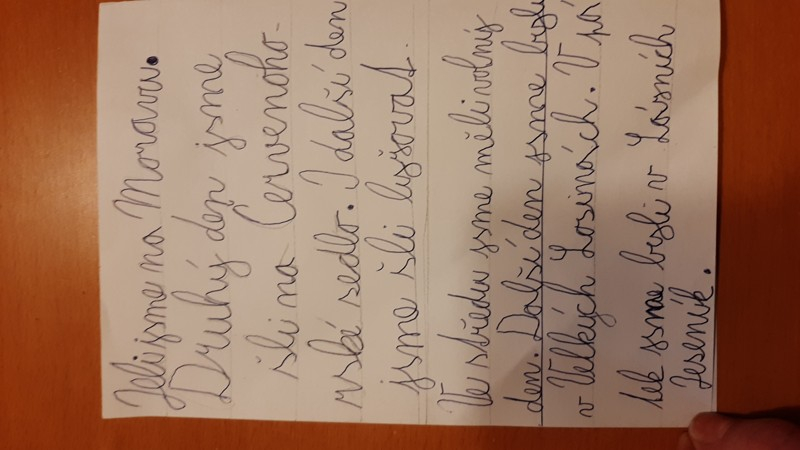 Jeli jsme na Moravu.
Druhý den jsme
šli na Červenoho-
rské sedlo. I další den
jsme šli lyžovat.
Ve středu jsme měli volný
den. Další den jsme byli
v Velkých Losinách. V pá
tek jsme byli v Lázních
Jeseník.